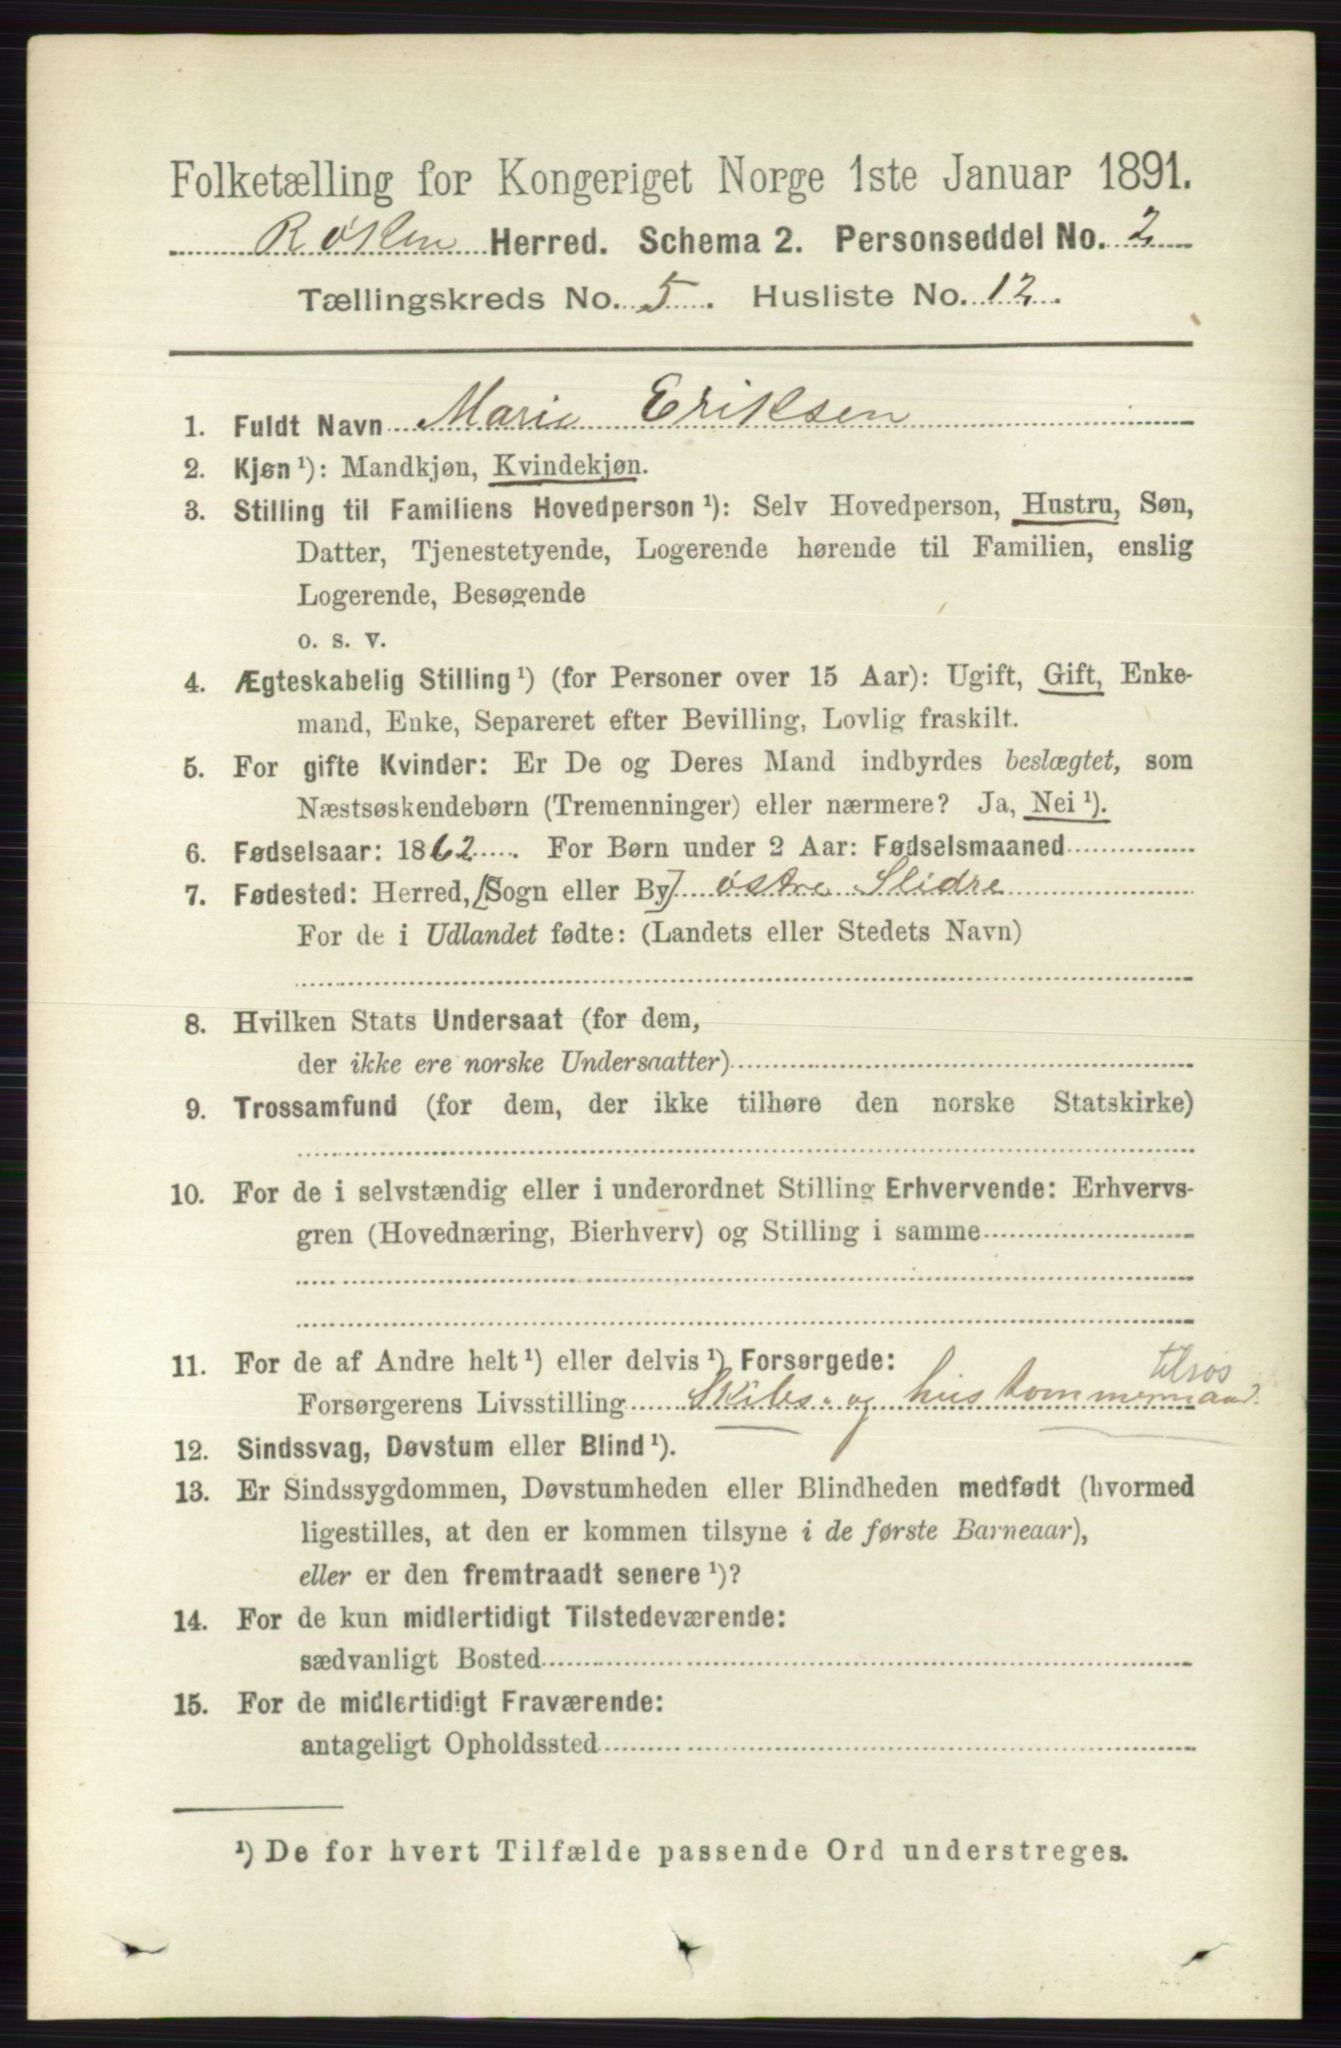 Folketælling for Kongeriget Norge 1ste Januar 1891.
Røken Herred. Schema 2. Personseddel No. 2
Tællingskreds No. 5. Husliste No. 12.
1. Fuldt Navn Marie Eriksen
2. Kjøn ¹): Mandkjøn, Kvindekjøn.
3. Stilling til Familiens Hovedperson ¹): Selv Hovedperson, Hustru, Søn,
Datter, Tjenestetyende, Logerende hørende til Familien, enslig
Logerende, Besøgende
o. s. v.
4. Ægteskabelig Stilling ¹) (for Personer over 15 Aar): Ugift, Gift, Enke-
mand, Enke, Separeret efter Bevilling, Lovlig fraskilt.
5. For gifte Kvinder: Er De og Deres Mand indbyrdes beslægtet, som
Næstsøskendebørn (Tremenninger) eller nærmere? Ja, Nei ¹).
6. Fødselsaar: 1862. For Børn under 2 Aar: Fødselsmaaned
7. Fødested: Herred, [Sogn eller By] østre Slidre
For de i Udlandet fødte: (Landets eller Stedets Navn)
8. Hvilken Stats Undersaat (for dem,
der ikke ere norske Undersaatter)
9. Trossamfund (for dem, der ikke tilhøre den norske Statskirke)
10. For de i selvstændig eller i underordnet Stilling Erhvervende: Erhvervs-
gren (Hovednæring, Bierhverv) og Stilling i samme
11. For de af Andre helt ¹) eller delvis ¹) Forsørgede:
tilsøs
Forsørgerens Livsstilling Skibs- og hustømmermand.
12. Sindssvag, Døvstum eller Blind ¹).
13. Er Sindssygdommen, Døvstumheden eller Blindheden medfødt (hvormed
ligestilles, at den er kommen tilsyne i de første Barneaar),
eller er den fremtraadt senere ¹)?
14. For de kun midlertidigt Tilstedeværende:
sædvanligt Bosted
15. For de midlertidigt Fraværende:
antageligt Opholdssted
¹) De for hvert Tilfælde passende Ord understreges.